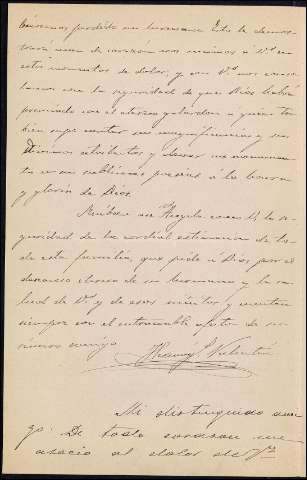 hubiéramos perdido un hermano. Esto le demos-
trará como de corazon nos unimos a Vd. en
estos momentos de dolor, y con Vd. nos conso-
lamos con la seguridad de que Dios habrá
premiado con el eterno galardon a quien tan
bien supo cantar sus magnificencias y sus
Divinos atributos y elevar un monumen-
to con sublimes poesías á la honra
y gloria de Dios.
Reciba en Angela como V. la se-
guridad de la cordial estimacion de to-
da esta familia, que pide á Dios por el
descanso eterno de su hermano y la sa-
lud de Vd. y de esos y cuenten
siempre con el entrañable afecto de su
amigo
Valentin
Mi distinguido ami-
go: De todo corazon me
asocio al dolor de Vd.